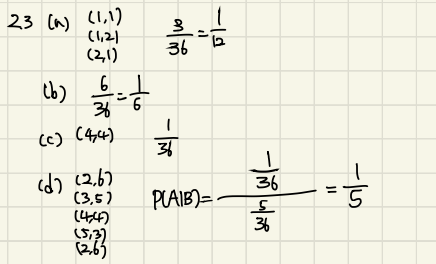 23 (a) (1,1)
(1,2)
(2,1)
3/36 = 1/12
(b) 6/36 = 1/6
(c) (4,4) 1/36
(d) (2,6)
(3,5)
(4,4)
(5,3)
(2,6)
P(A|B) = (1/36)/(5/36) = 1/5